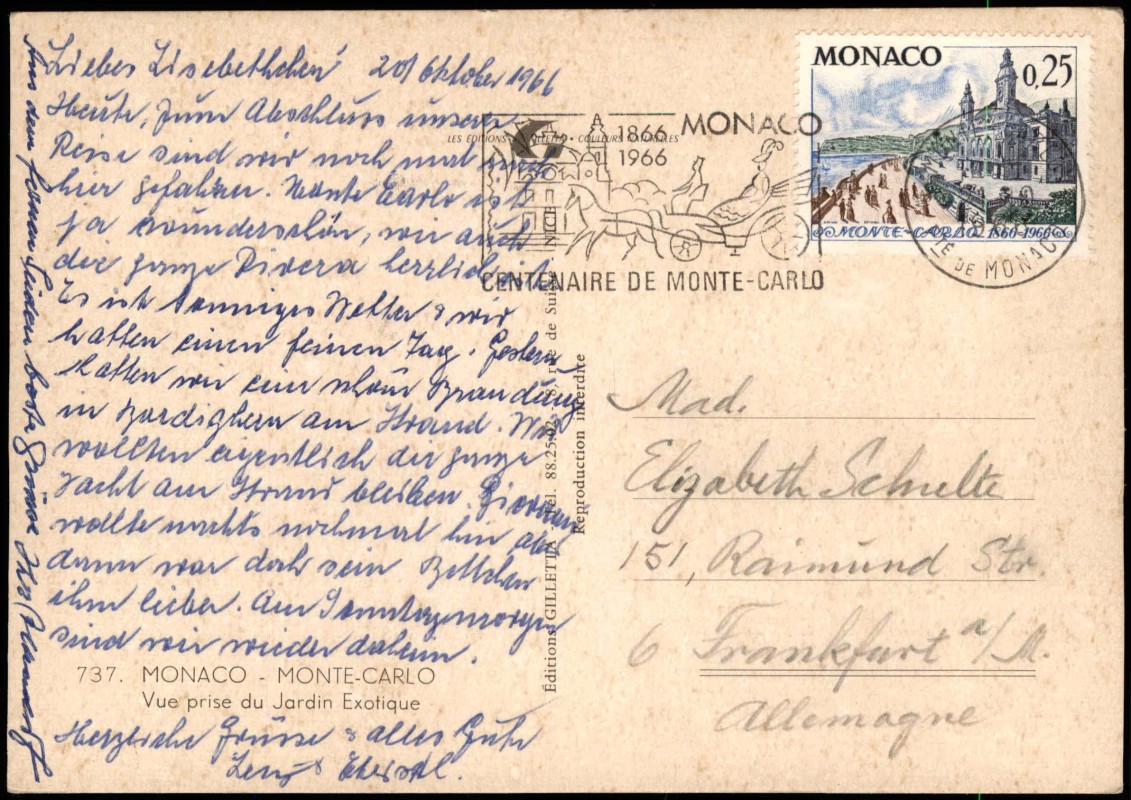 Liebes Lisebethchen! 20/Oktober 1966
Heute, zum Abschluss unserer
Reise sind wir noch mal nach
hier gefahren. Monte Carlo ist
ja wunderschön, wie auch
die ganze Rivera herrlich ist.
Es ist sonniges Wetter & wir
hatten einen feinen Tag. Gestern
hatten wir eine schöne Brandung
in Bordighera am Strand. Wir
wollten eigentlich die ganze
Nacht am Strand bleiben.
wollte nachts nochmal hin aber
dann war doch sein Bettchen
ihm lieber. Am Sonntagmorgen
sind wir wieder daheim.
Herzliche Grüsse & alles Gute
Aus dem fernen Süden beste Grüsse Ihr
737. MONACO - MONTE-CARLO
Vue prise du Jardin Exotique
LES ÉDITIONS GILLETTA - COULEURS NATURELLES
Éditions GILLETTA - Tél. 88.25.02 - 8, rue de Suisse NICE
Reproduction interdite
1866 MONACO
1966
CENTENAIRE DE MONTE-CARLO
MONACO
0,25
MONTE-CARLO 1866-1966
DE MONACO
Mad.
Elizabeth Schulte
151, Raimund Str.
6 Frankfurt a/M.
Allemagne